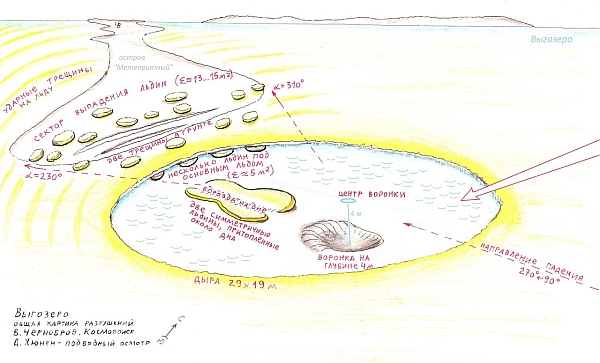 "В
Выгозеро
остров
"Метеоритный"
УДАРНЫЕ ТРЕЩИНЫ
НА ЛЬДУ
СЕКТОР ВЫПАДЕНИЯ ЛЬДИН (Σ≈13...15м²)
α=310°
ДВЕ ТРЕЩИНЫ В ГРУНТЕ
α=230°
НЕСКОЛЬКО ЛЬДИН ПОД
ОСНОВНЫМ ЛЬДОМ
(Σ≈5 м²)
БОРОЗДА НА ДНЕ
ДВЕ СИММЕТРИЧНЫЕ
ЛЬДИНЫ, ПРИТОПЛЕННЫЕ
ОКОЛО ДНА
ЦЕНТР ВОРОНКИ
4 м
ВОРОНКА НА
ГЛУБИНЕ 4м
НАПРАВЛЕНИЕ ПАДЕНИЯ
270°←90°
ДЫРА 29×19 м
ВЫГОЗЕРО
ОБЩАЯ КАРТИНА РАЗРУШЕНИЙ
В. ЧЕРНОБРОВ. КОСМОПОИСК
Д. ХЮНЕН - ПОДВОДНЫЙ ОСМОТР
С
Ю